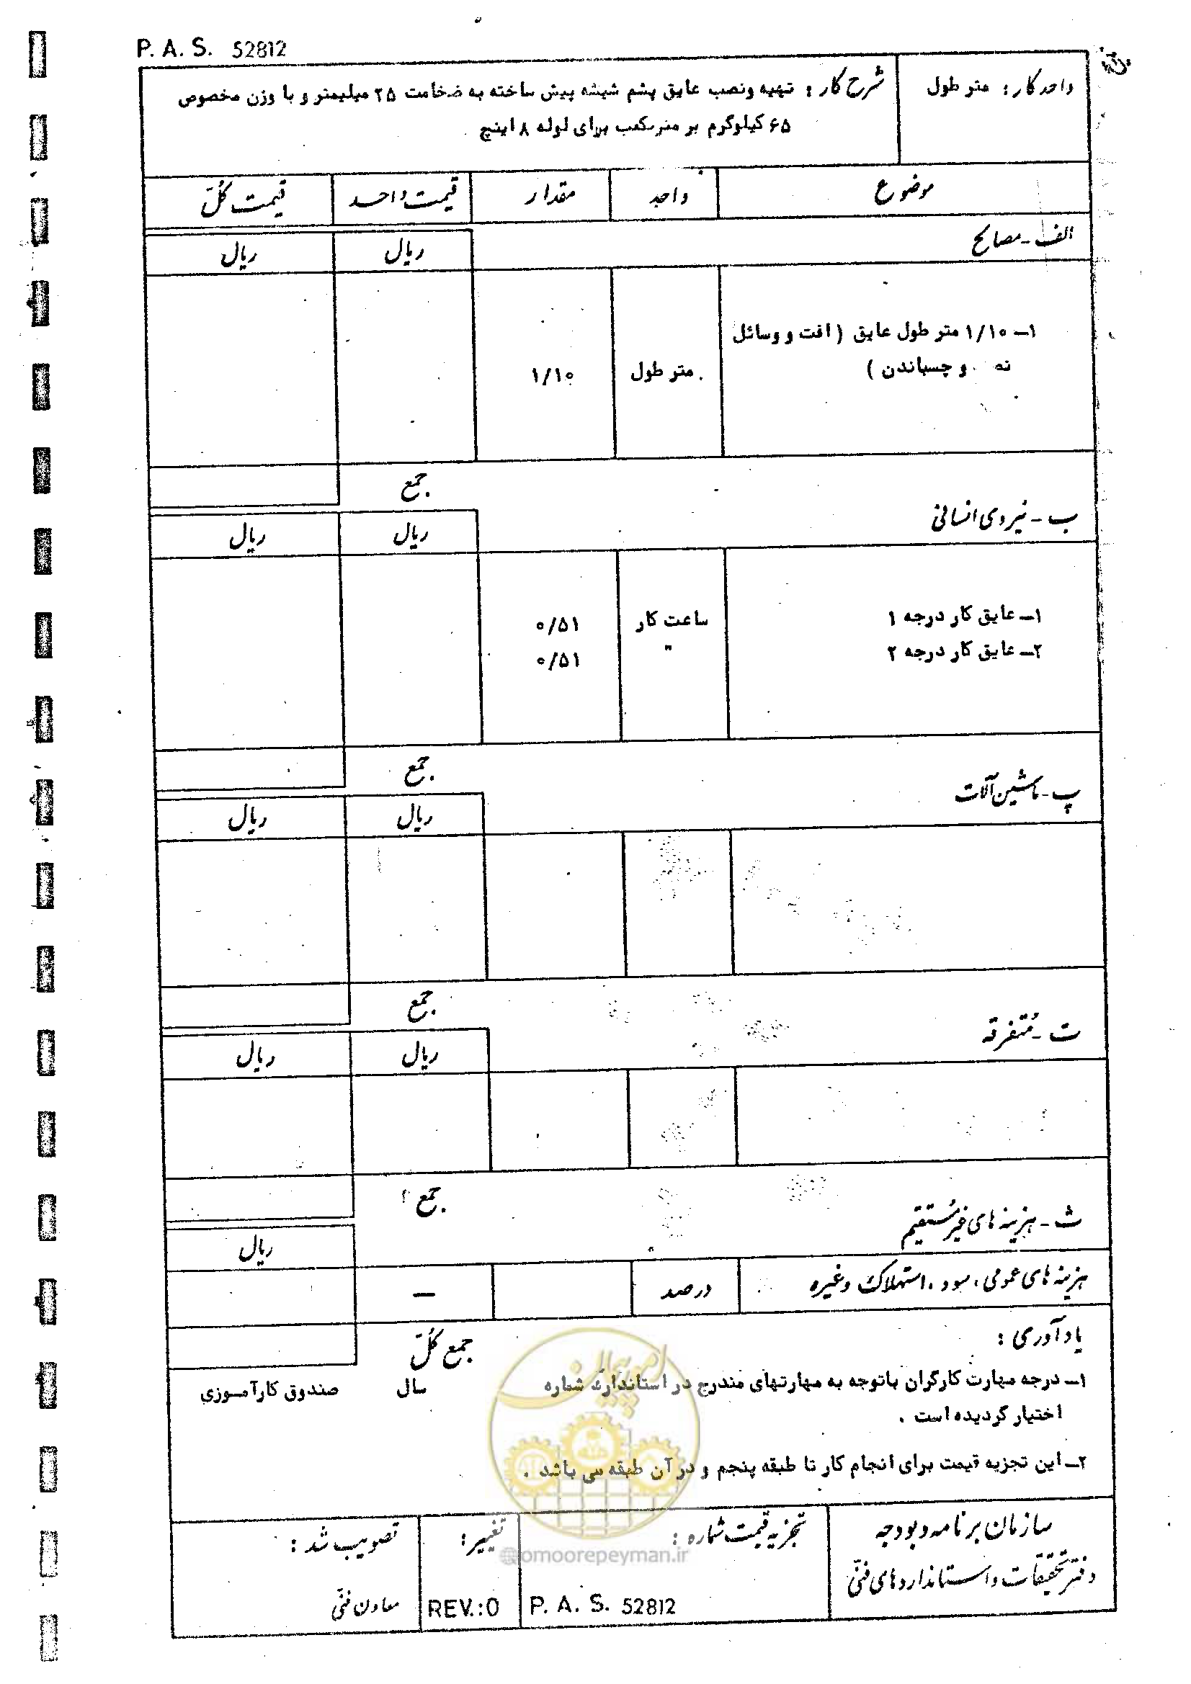 P. A. S. 52812
واحد کار : متر طول
شرح کار : تهیه ونصب عایق پشم شیشه پیش ساخته به ضخامت ۲۵ میلیمتر و با وزن مخصوص
۶۵ کیلوگرم بر مترمکعب برای لوله ۸ اینچ .
موضوع واحد مقدار قیمت واحد قیمت کلّ
الف - مصالح ریال ریال
۱- ۱/۱۰ متر طول عایق ( افت و وسائل
و چسباندن ) متر طول ۱/۱۰
جمع
ب - نیروی انسانی ریال ریال
۱- عایق کار درجه ۱ ساعت کار ۰/۵۱
۲- عایق کار درجه ۲ " ۰/۵۱
جمع
پ - ماشین آلات ریال ریال
جمع
ت - مُتفرقه ریال ریال
جمع
ث - هزینه های غیرمُستقیم ریال
هزینه های عمومی ، سود ، استهلاک وغیره درصد —
یادآوری : جمع کُلّ
۱- درجه مهارت کارگران باتوجه به مهارتهای مندرج در استاندارد شماره سال صندوق کارآموزی
اختیار گردیده است .
۲- این تجزیه قیمت برای انجام کار تا طبقه پنجم و در آن طبقه می باشد .
امور پیمان
@omoorepeyman.ir
سازمان برنامه و بودجه
دفتر تحقیقات و استانداردهای فنّی
تجزیه قیمت شماره :
P. A. S. 52812
تغییر :
REV.:0
تصویب شد :
معاون فنّی